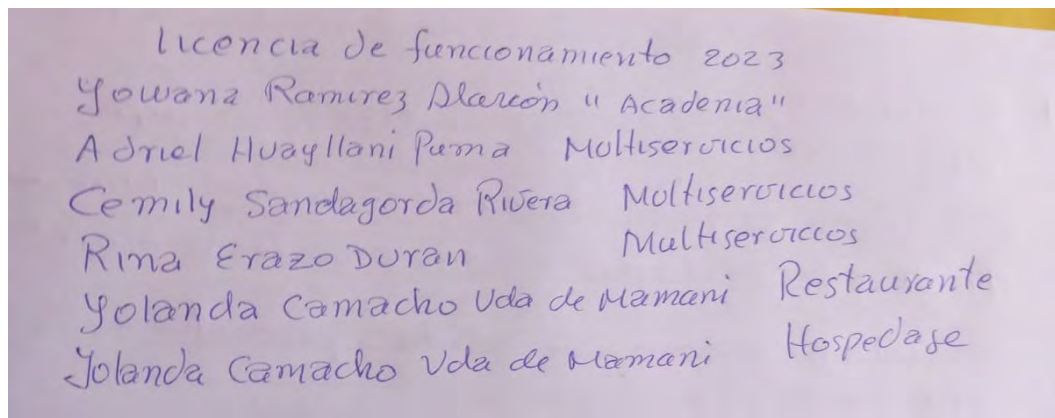 licencia de funcionamiento 2023
Yowana Ramirez Alarcón "Academia"
Adriel Huayllani Puma Moltiservicios
Cemily Sandagorda Rivera Moltiservicios
Rina Erazo Duran Multiservicios
Yolanda Camacho Vda de Mamani Restaurante
Yolanda Camacho Vda de Mamani Hospedaje